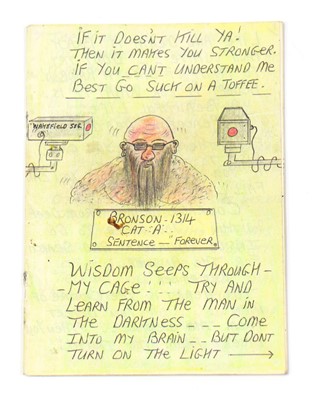 IF IT DOESN'T KILL YA!
THEN IT MAKES YOU STRONGER.
IF YOU CANT UNDERSTAND ME
BEST GO SUCK ON A TOFFEE.
WAKEFIELD
BRONSON - 1314
CAT·A··
SENTENCE — "FOREVER"
WISDOM SEEPS THROUGH -
- MY CAGE!!! TRY AND
LEARN FROM THE MAN IN
THE DARKNESS _ _ _ COME
INTO MY BRAIN _ _ BUT DONT
TURN ON THE LIGHT ⟶